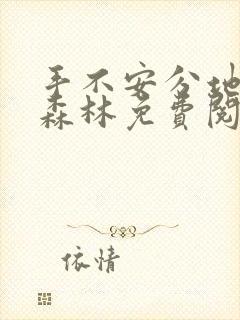 手不安分地
森林免费阅
依情